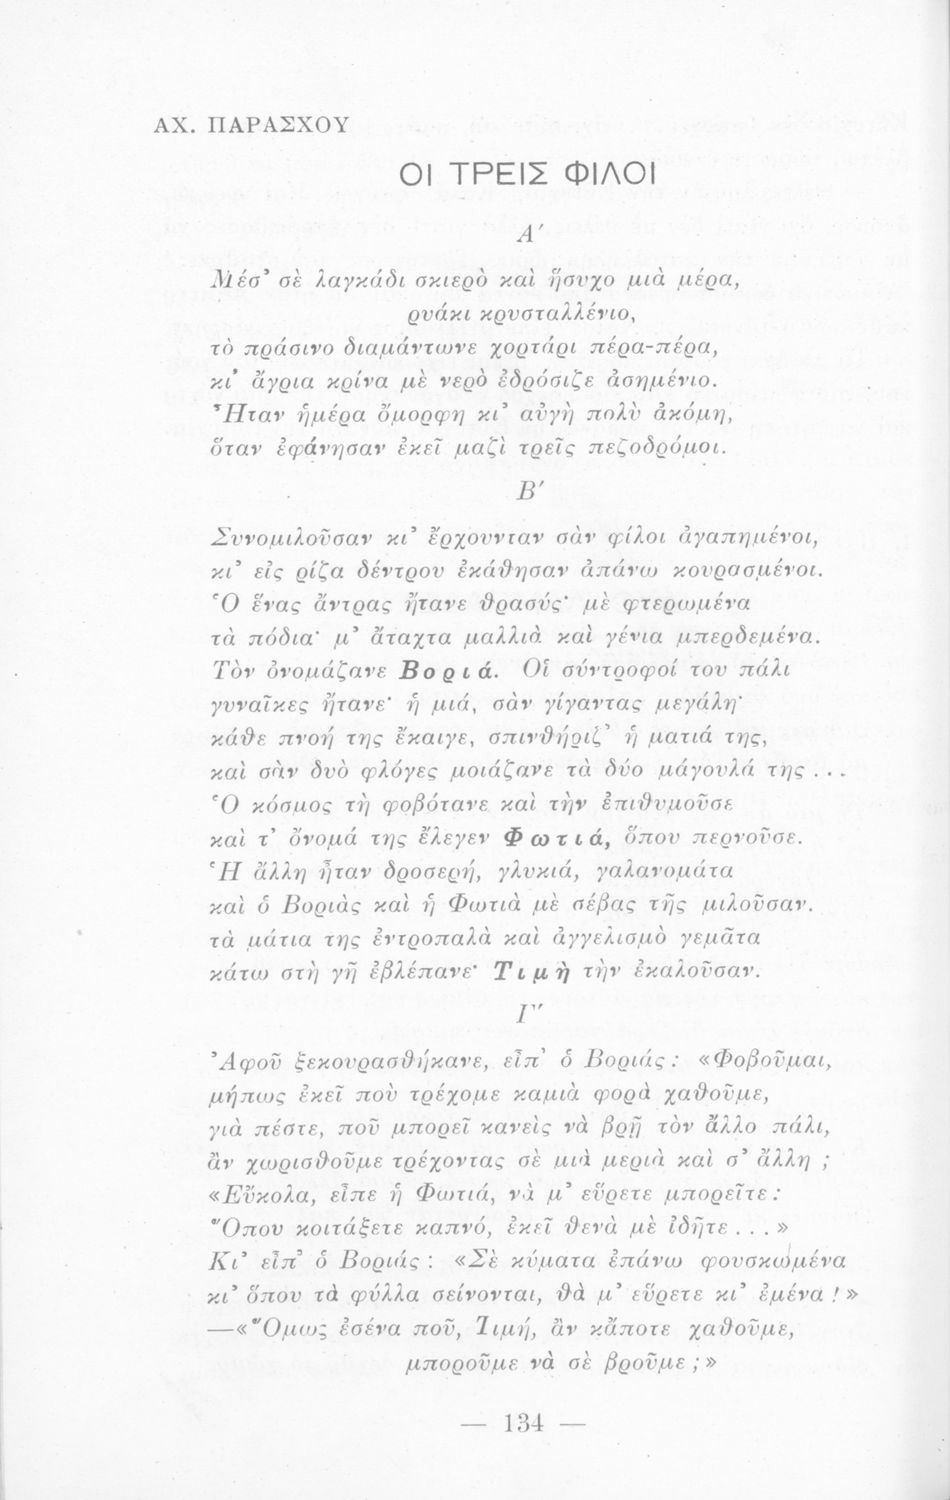 ΑΧ. ΠΑΡΑΣΧΟΥ
ΟΙ ΤΡΕΙΣ ΦΙΛΟΙ
Α′
Μέσ’ σὲ λαγκάδι σκιερὸ καὶ ἥσυχο μιὰ μέρα,
ρυάκι κρυσταλλένιο,
τὸ πράσινο διαμάντωνε χορτάρι πέρα-πέρα,
κι’ ἄγρια κρίνα μὲ νερὸ ἐδρόσιζε ἀσημένιο.
Ἦταν ἡμέρα ὄμορφη κι’ αὐγὴ πολὺ ἀκόμη,
ὅταν ἐφάνησαν ἐκεῖ μαζὶ τρεῖς πεζοδρόμοι.
Β′
Συνομιλοῦσαν κι’ ἔρχουνταν σὰν φίλοι ἀγαπημένοι,
κι’ εἰς ρίζα δέντρου ἐκάθησαν ἀπάνω κουρασμένοι.
Ὁ ἕνας ἄντρας ἤτανε θρασύς· μὲ φτερωμένα
τὰ πόδια· μ’ ἄταχτα μαλλιὰ καὶ γένια μπερδεμένα.
Τὸν ὀνομάζανε Βοριά. Οἱ σύντροφοί του πάλι
γυναῖκες ἤτανε· ἡ μιά, σὰν γίγαντας μεγάλη·
κάθε πνοή της ἔκαιγε, σπινθήριζ’ ἡ ματιά της,
καὶ σὰν δυὸ φλόγες μοιάζανε τὰ δύο μάγουλά της . . .
Ὁ κόσμος τὴ φοβότανε καὶ τὴν ἐπιθυμοῦσε
καὶ τ’ ὄνομά της ἔλεγεν Φωτιά, ὅπου περνοῦσε.
Ἡ ἄλλη ἦταν δροσερή, γλυκιά, γαλανομάτα
καὶ ὁ Βοριὰς καὶ ἡ Φωτιὰ μὲ σέβας τῆς μιλοῦσαν.
τὰ μάτια της ἐντροπαλὰ καὶ ἀγγελισμὸ γεμᾶτα
κάτω στὴ γῆ ἐβλέπανε· Τιμὴ τὴν ἐκαλοῦσαν.
Γ′
Ἀφοῦ ξεκουρασθήκανε, εἶπ’ ὁ Βοριάς : «Φοβοῦμαι,
μήπως ἐκεῖ ποὺ τρέχομε καμιὰ φορὰ χαθοῦμε,
γιὰ πέστε, ποῦ μπορεῖ κανεὶς νὰ βρῇ τὸν ἄλλο πάλι,
ἂν χωρισθοῦμε τρέχοντας σὲ μιὰ μεριὰ καὶ σ’ ἄλλη ;
«Εὔκολα, εἶπε ἡ Φωτιά, νὰ μ’ εὕρετε μπορεῖτε :
Ὅπου κοιτάξετε καπνό, ἐκεῖ θενὰ μὲ ἰδῆτε . . . »
Κι’ εἶπ’ ὁ Βοριάς : «Σὲ κύματα ἐπάνω φουσκωμένα
κι’ ὅπου τὰ φύλλα σείνονται, θὰ μ’ εὕρετε κι’ ἐμένα ! »
—«Ὅμως ἐσένα ποῦ, Τιμή, ἂν κἄποτε χαθοῦμε,
μποροῦμε νὰ σὲ βροῦμε ; »
— 134 —